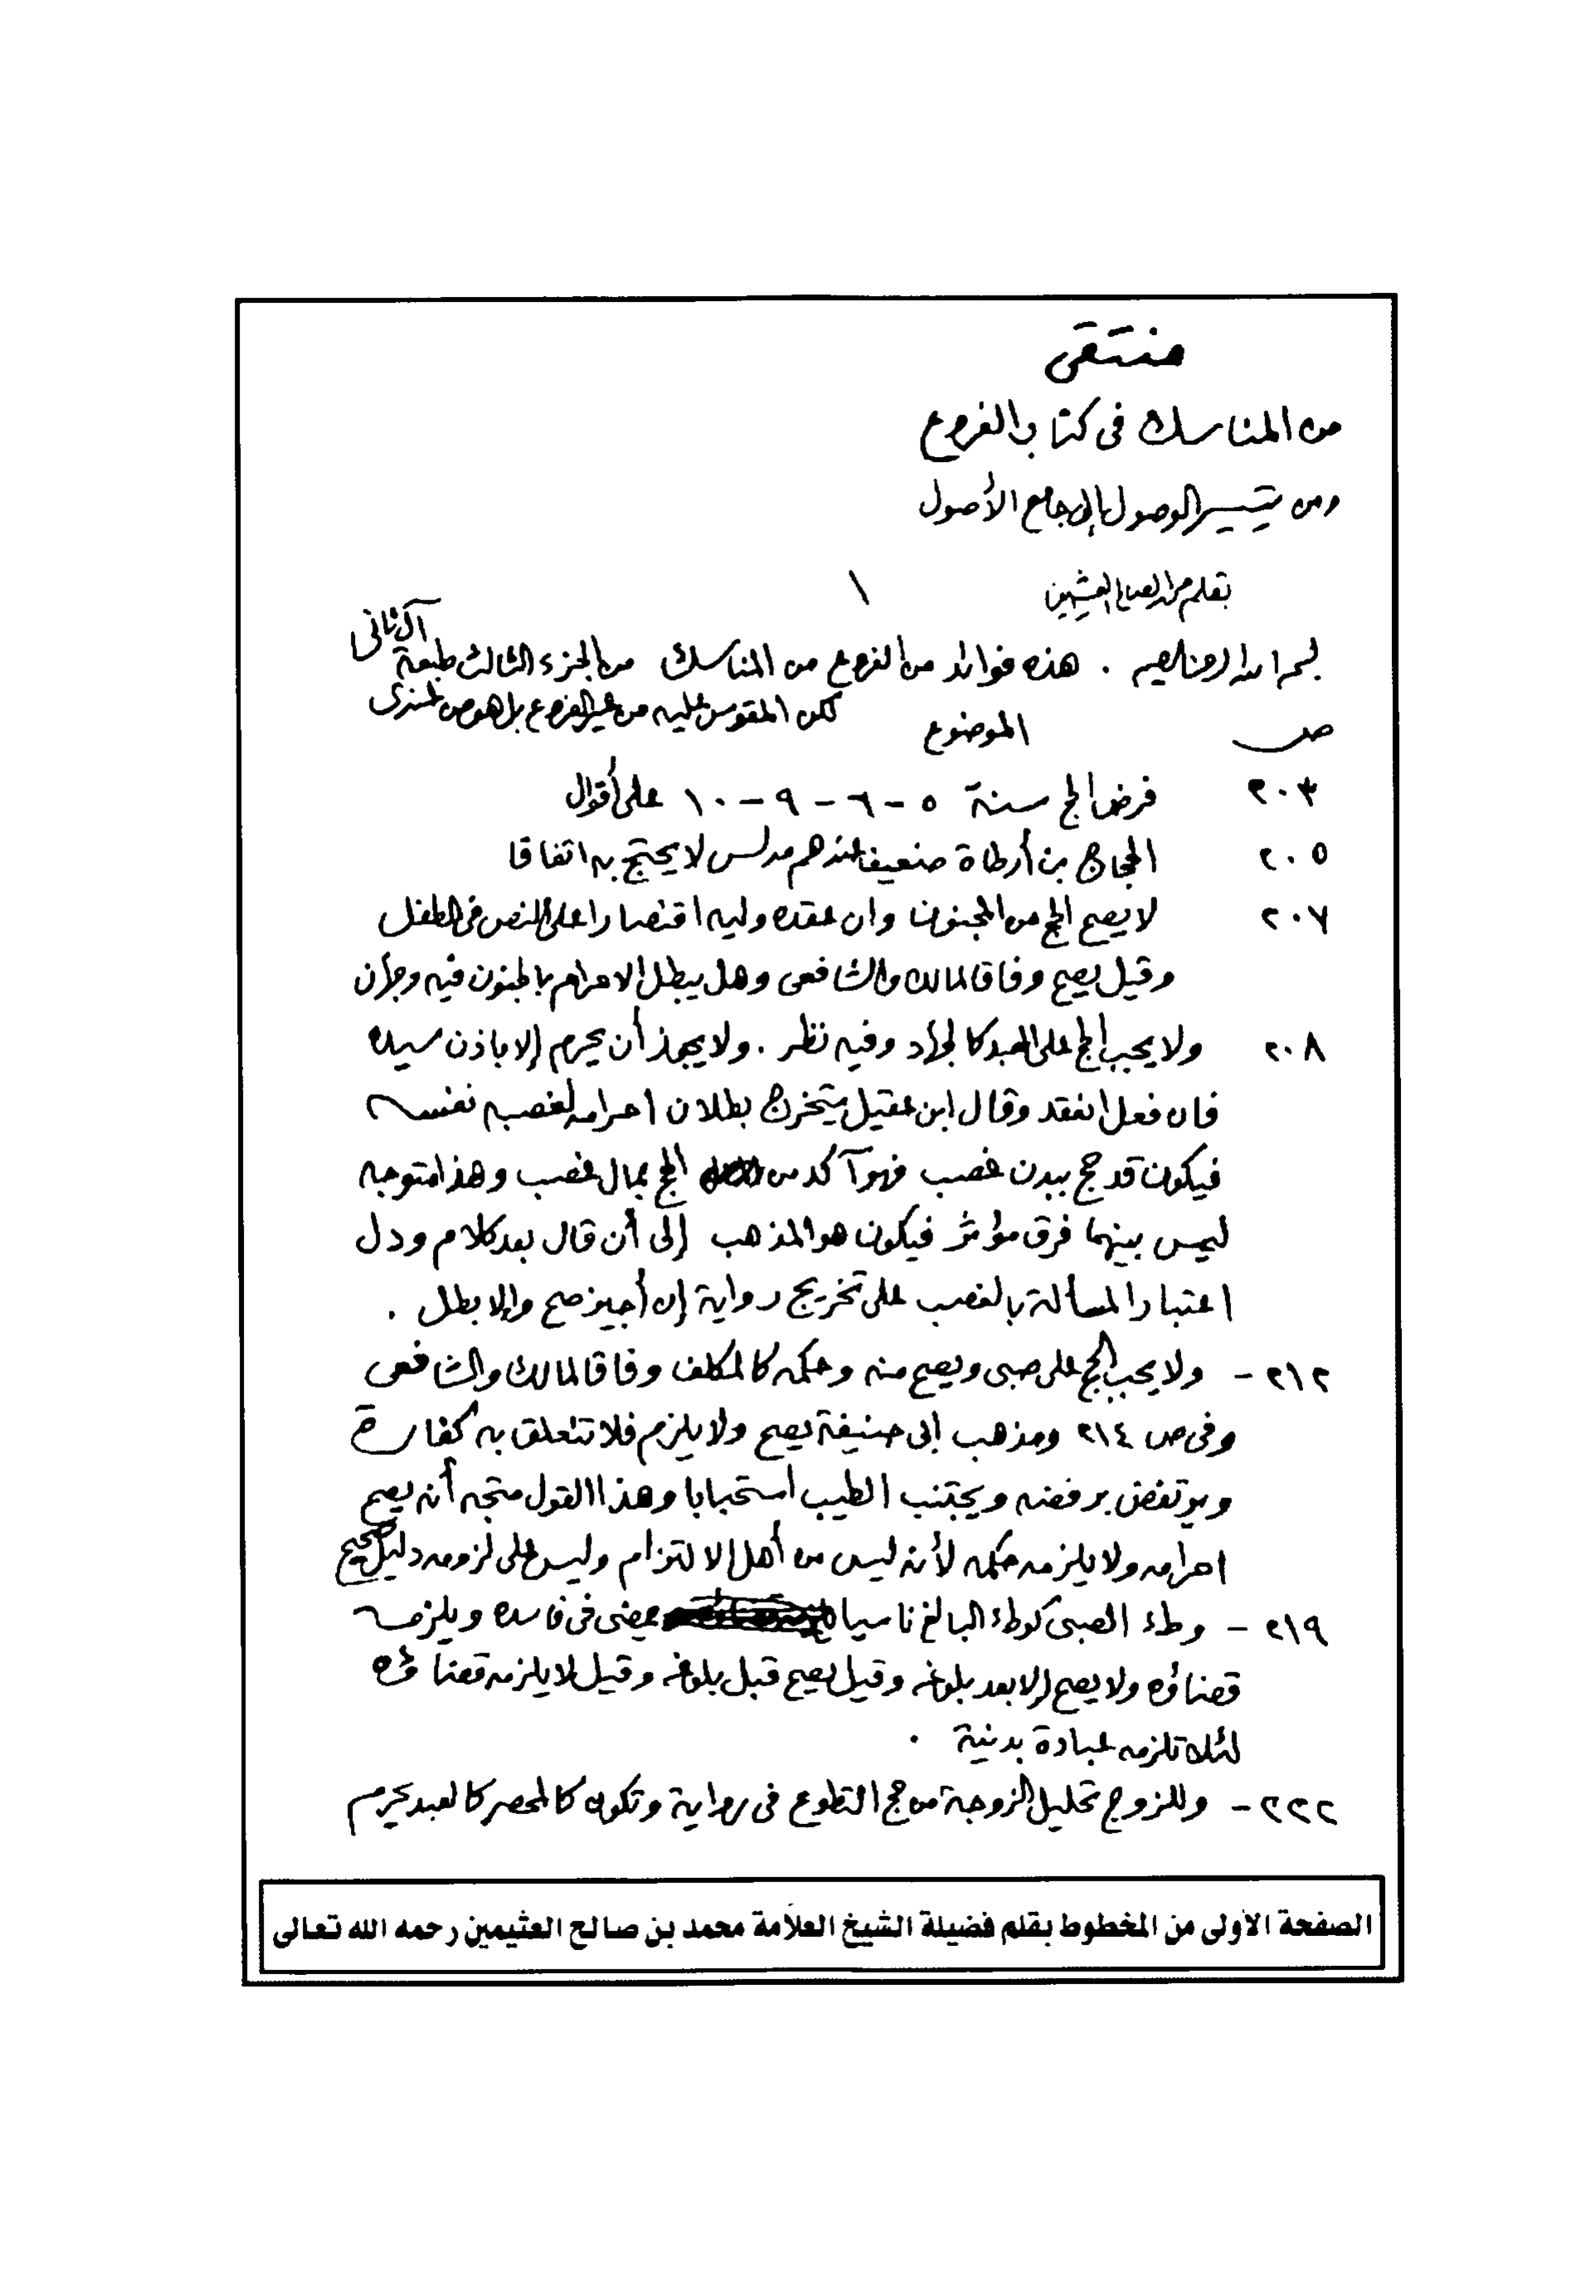 منتقى
من المناسك في كتاب الفروع
ومن تيسير الوصول إلى جامع الأصول
بقلم محمد الصالح العثيمين
١
بسم الله الرحمن الرحيم . هذه فوائد من الفروع من المناسك من الجزء الثالث طبعة آل ثاني
لكن المقوس عليه من غير الفروع بل هو من عندي
ص الموضوع
٢٠٣ فرض الحج سنة ٥ - ٦ - ٩ - ١٠ على أقوال
٢٠٥ الحجاج بن أرطاة ضعيف عندهم مدلس لا يحتج به اتفاقا
٢٠٧ لا يصح الحج من المجنون وان عقده وليه اقتصارا على النص في الطفل
وقيل يصح وفاقا لمالك والشافعي وهل يبطل الاحرام بالجنون فيه وجهان
٢٠٨ ولا يجب الحج على العبد كالجهاد وفيه نظر . ولا يجوز أن يحرم إلا باذن سيده
فان فعل انعقد وقال ابن عقيل يتخرج بطلان احرامه لغصبه نفسه
فيكون قد حج ببدن غصب فهو آكد من الحج بمال غصب وهذا متوجه
ليس بينهما فرق مؤثر فيكون هو المذهب إلى أن قال بعد كلام ودل
اعتبار المسألة بالغصب على تخريج رواية إن أجيز صح وإلا بطل .
٢١٢ - ولا يجب الحج على صبي ويصح منه وحكمه كالمكلف وفاقا لمالك والشافعي
وفي ص ٢١٤ ومذهب أبي حنيفة يصح ولا يلزم فلا تتعلق به كفارة
ويرتفض برفضه ويجتنب الطيب استحبابا وهذا القول متجه أنه يصح
احرامه ولا يلزمه حكمه لأنه ليس من أهل الالتزام وليس على لزومه دليل صحيح
٢١٩ - وطء الصبي كوطء البالغ ناسيا يمضي في فاسده ويلزمه
قضاؤه ولا يصح إلا بعد بلوغه وقيل يصح قبل بلوغه وقيل لا يلزمه قضاؤه
لئلا تلزمه عبادة بدنية .
٢٢٢ - وللزوج تحليل الزوجة من حج التطوع في رواية وتكون كالمحصر كالعبد يحرم
الصفحة الأولى من المخطوط بقلم فضيلة الشيخ العلاّمة محمد بن صالح العثيمين رحمه الله تعالى